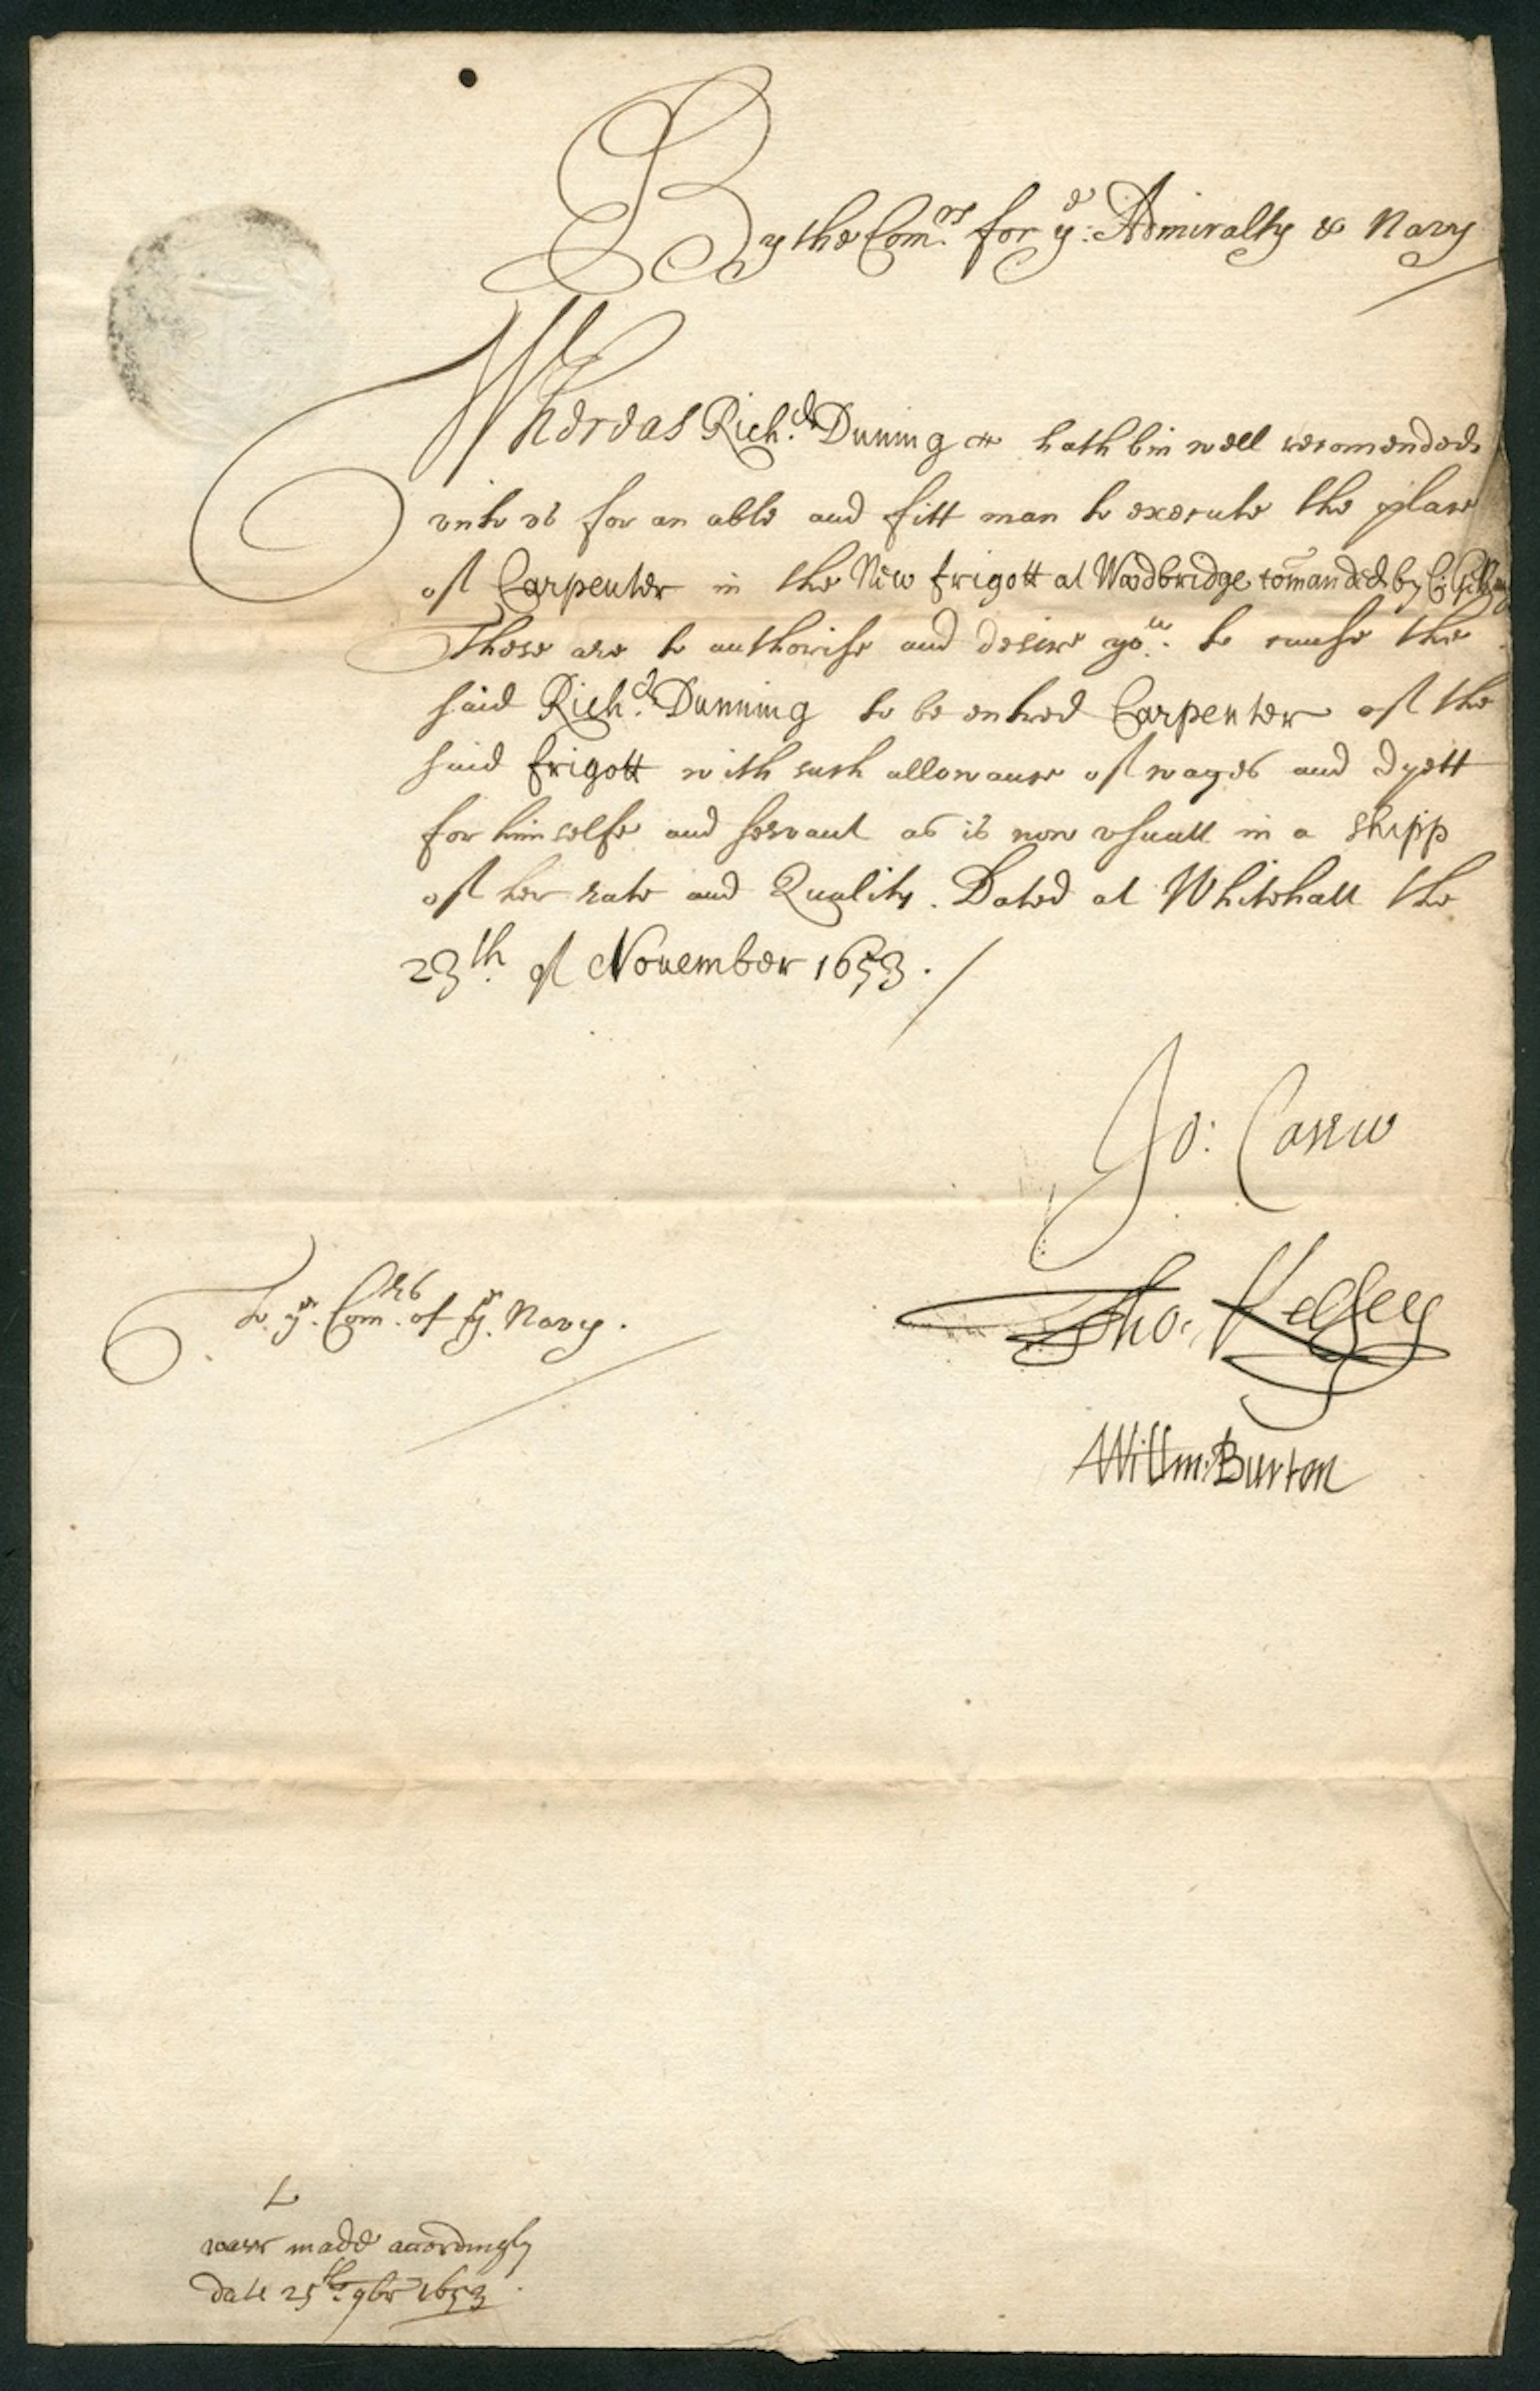 By the Com.rs for ye: Admiralty & Navy
Whereas Rich.d Dunning hath bin well recomended
vnto vs for an able and fitt man to execute the place
of Carpenter in the New frigott at Woodbridge comanded by C:
These are to authorise and desire you. to cause the
said Rich.d Dunning to be entred Carpenter of the
said frigott with such allowance of wages and dyett
for himselfe and servant as is now vsuall in a shipp
of her rate and Quality. Dated at Whitehall the
23th. of November 1653./
Jo: Carew
Tho: Kelsey
Willm: Burton
To ye. Com.rs of ye. Navy.
made accordingly
date 25th. 9br 1653.